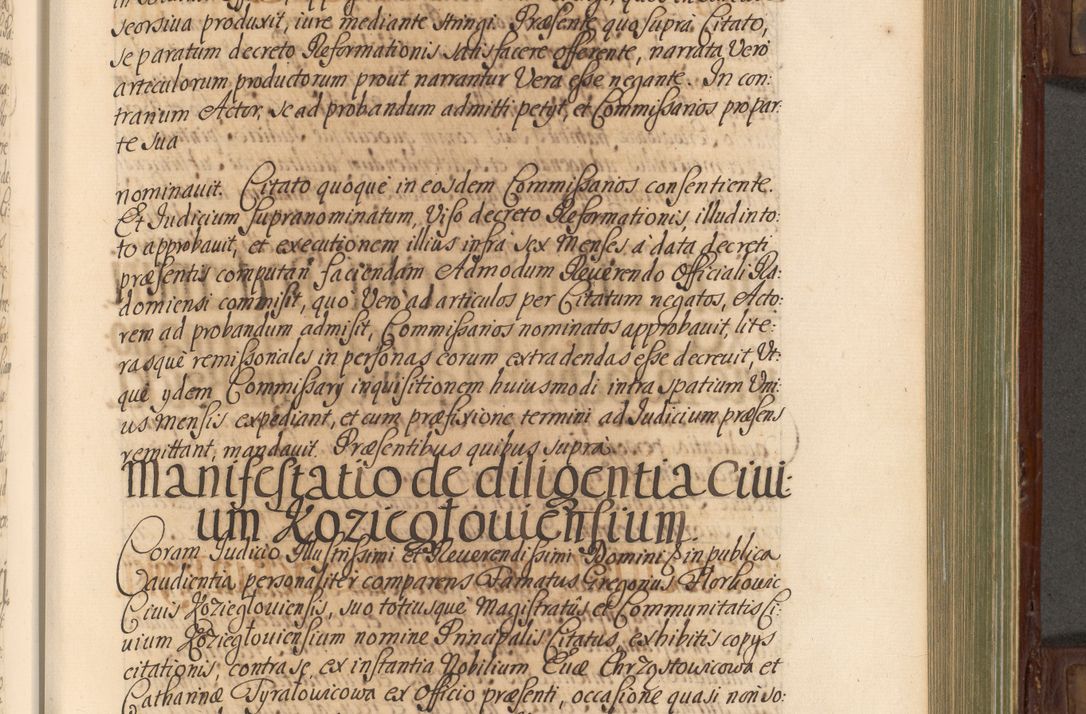 seorsiua produxit, iure mediante stringi. Præsente quo supra Citato,
se paratum decreto Reformationis satisfacere offerente, narrata Vero
articulorum productorum prout narrantur Vera esse negante. In con:
trarium Actor, se ad probandum admitti petyt, et Commissarios pro par:
te sua
nominauit. Citato quoque in eosdem Commissarios consentiente.
Et Iudicium supranominatum, Viso decreto Reformationis, illud in to:
to approbauit, et executionem illius infra sex Menses a data decreti
præsentis computan faciendam Admodum Reuerendo Officiali Ra:
domiensi commisit, quo Vero ad articulos per Citatum negatos, Acto:
rem ad probandum admisit, Commissarios nominatos approbauit, lite:
rasque remissoriales in personas eorum extradendas esse decreuit, Ut:
que ydem Commissary inquisitionem huiusmodi intra spatium Uni:
us Mensis expediant, et cum præfixione termini ad Iudicium præsens
remittant, mandauit. Præsentibus quibus supra
Manifestatio de diligentia Ciui:
um Kozicgłouiensium.
Coram Iudicio Illustrissimi et Reuerendissimi Domini in publica
audientia personaliter comparens Famatus Gregorius Florkowic
Ciuis Kozieglouiensis, suo totiusque Magistratûs et Communitatis Ci:
uium Kozieglouiensium nomine Principalis Citatus, exhibitis copys
citationis, contra se, ex instantia Nobilium Euæ Chrzostowicowa et
Catharinæ Tyralowicowa ex Officio præsenti, occasione quasi non so: